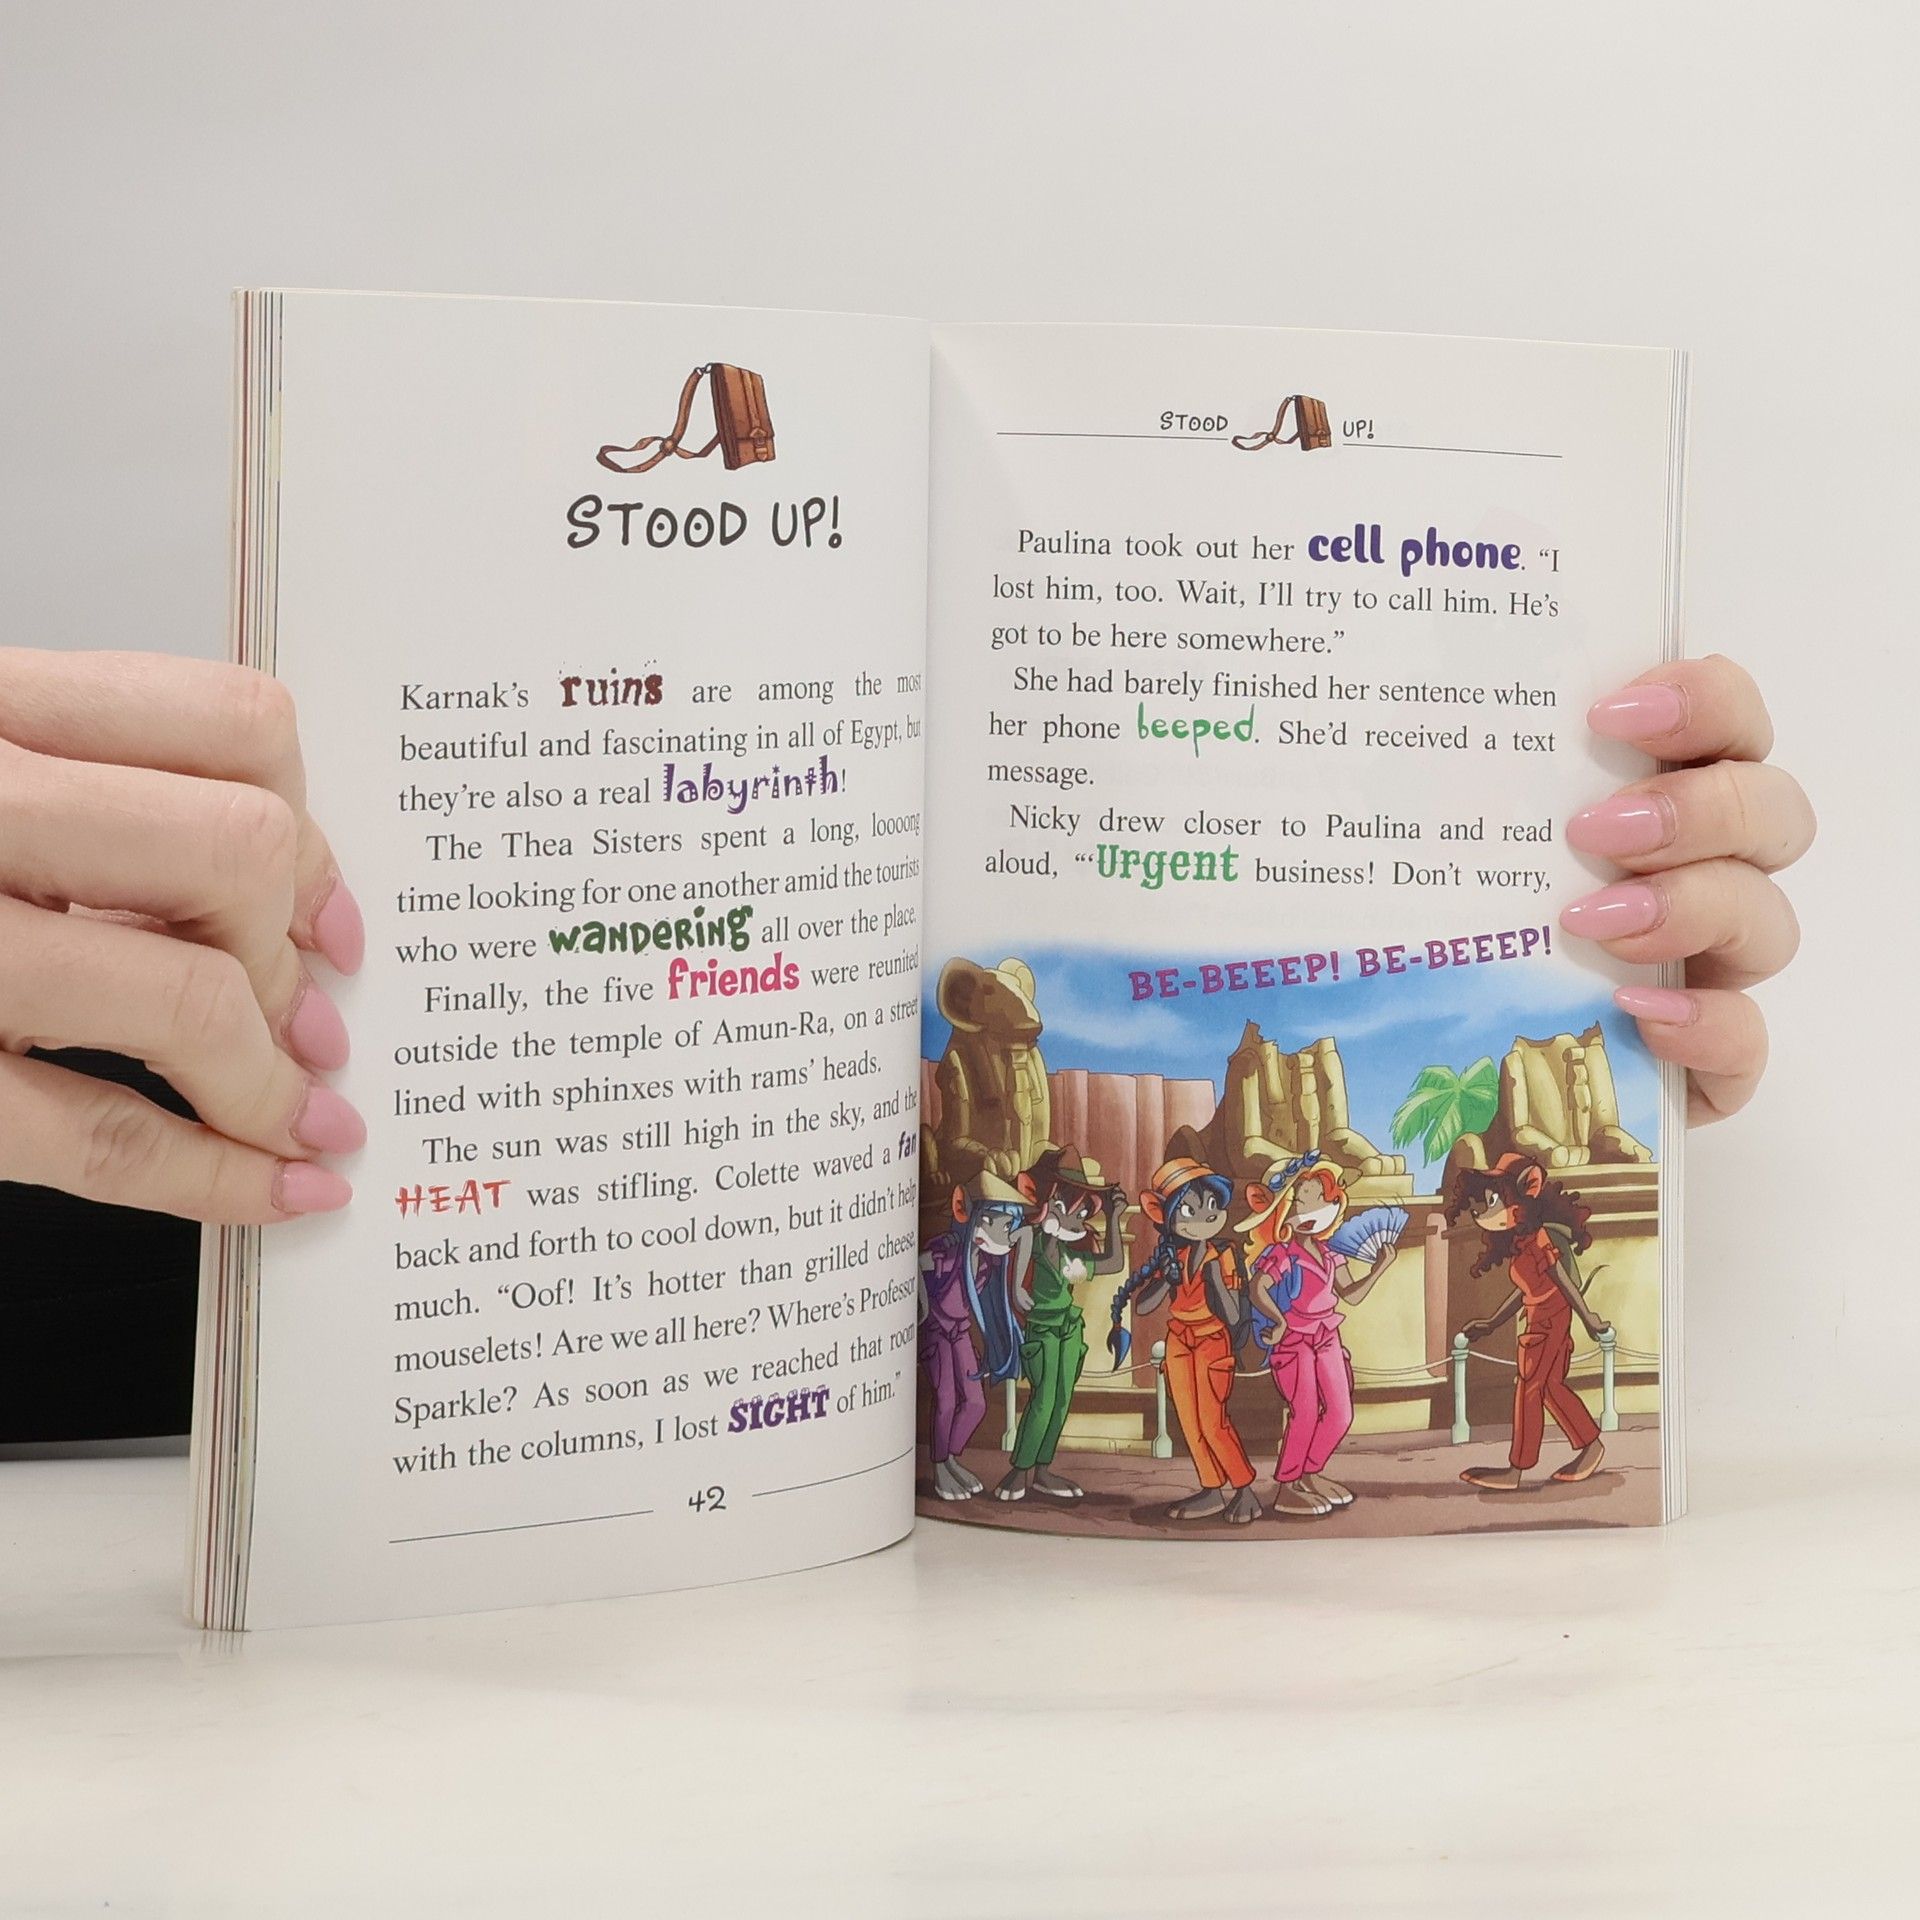 STOOD UP!
Karnak's ruins are among the most
beautiful and fascinating in all of Egypt, but
they're also a real labyrinth!
The Thea Sisters spent a long, loooong
time looking for one another amid the tourists
who were wandering all over the place.
Finally, the five friends were reunited
outside the temple of Amun-Ra, on a street
lined with sphinxes with rams' heads.
The sun was still high in the sky, and the
HEAT was stifling. Colette waved a fan
back and forth to cool down, but it didn't help
much. “Oof! It's hotter than grilled cheese
mouselets! Are we all here? Where's Professor
Sparkle? As soon as we reached that room
with the columns, I lost SIGHT of him.”
42
STOOD UP!
Paulina took out her cell phone. “I
lost him, too. Wait, I'll try to call him. He's
got to be here somewhere.”
She had barely finished her sentence when
her phone beeped. She'd received a text
message.
Nicky drew closer to Paulina and read
aloud, “‘Urgent business! Don't worry,
BE-BEEEP! BE-BEEEP!